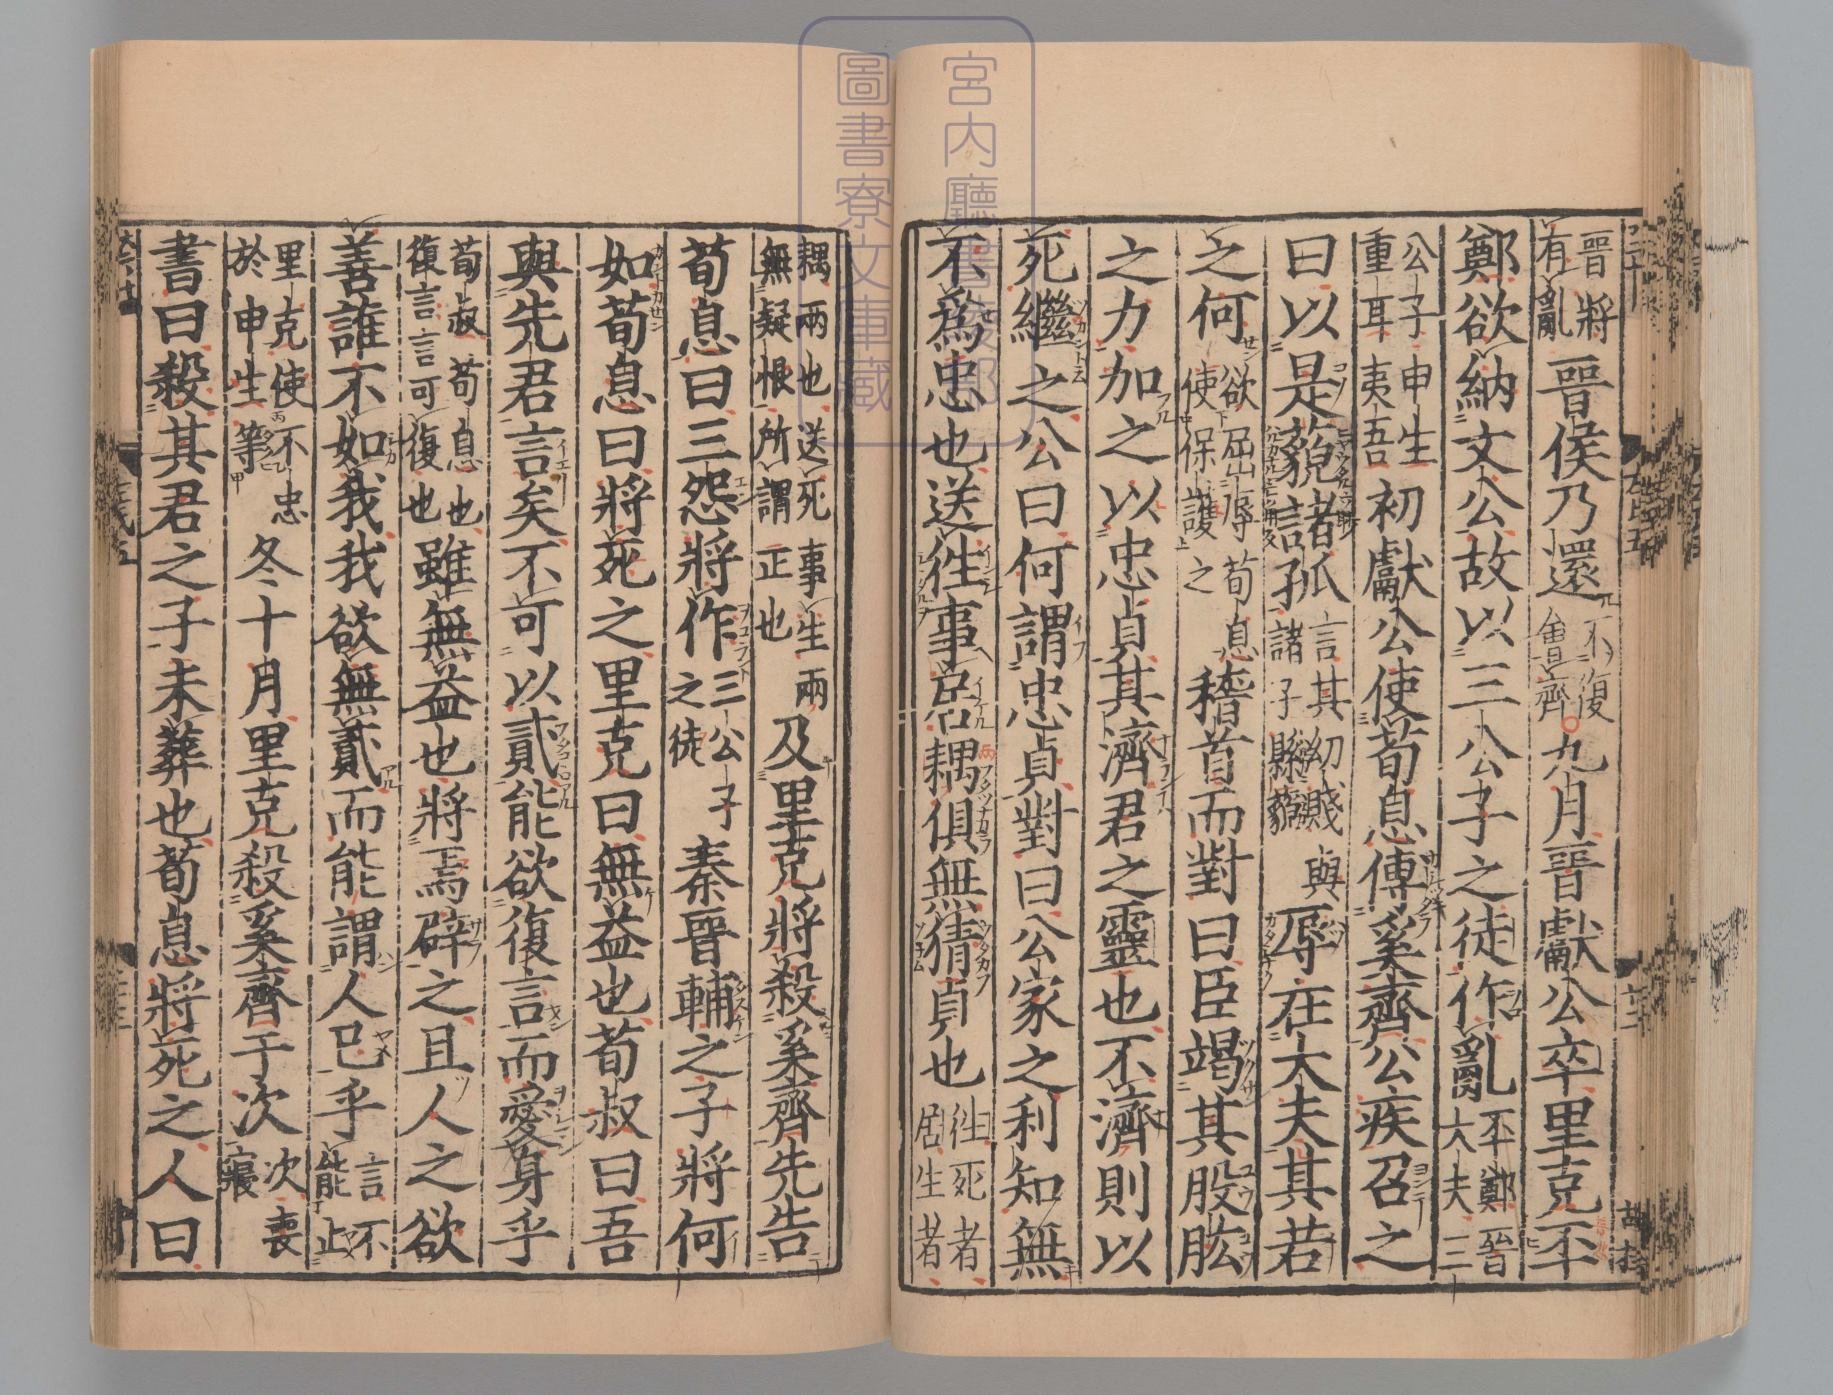 宮内廳書陵部
圖書寮文庫藏
晋將有亂晋侯乃還不復會齊九月晋獻公卒里克丕
鄭欲納文公故以三公子之徒作亂丕鄭晉大夫三
公子申生重耳夷吾初獻公使荀息傅奚齊公疾召之
曰以是藐諸孤言其幼賤與諸子縣藐辱在大夫其若
之何欲屈辱荀息使保護之稽首而對曰臣竭其股肱
之力加之以忠貞其濟君之靈也不濟則以
死繼之公曰何謂忠貞對曰公家之利知無
不爲忠也送徃事居耦俱無猜貞也徃死者居生者
耦兩也送死事生兩無疑恨所謂正也及里克將殺奚齊先告
荀息曰三怨將作三公子之徒秦晉輔之子將何
如荀息曰將死之里克曰無益也荀叔曰吾
與先君言矣不可以貳能欲復言而愛身乎
荀叔荀息也復言言可復也雖無益也將焉辟之且人之欲
善誰不如我我欲無貳而能謂人已乎言不能止
里克使不忠於申生等冬十月里克殺奚齊于次次喪寢
書曰殺其君之子未葬也荀息將死之人曰